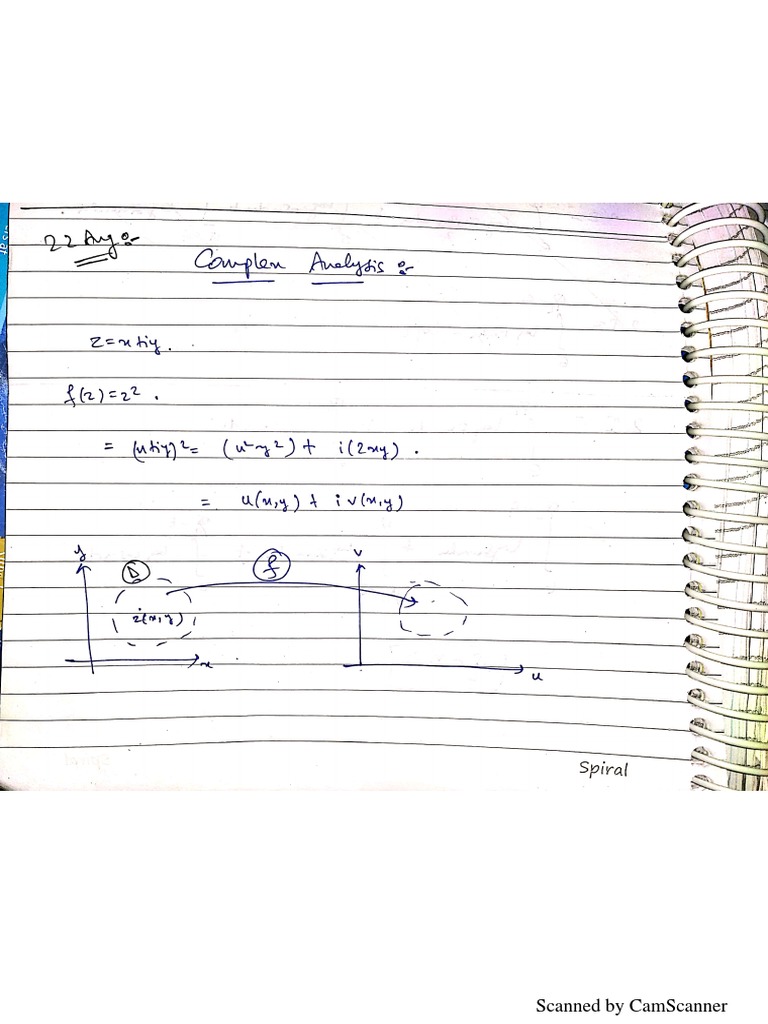 22 Aug :-
Complex Analysis :-
z = x+iy.
f(z) = z² .
= (x+iy)² = (x²-y²) + i(2xy) .
= u(x,y) + i v(x,y)
y D f v
z(x,y)
x u
Spiral
Scanned by CamScanner